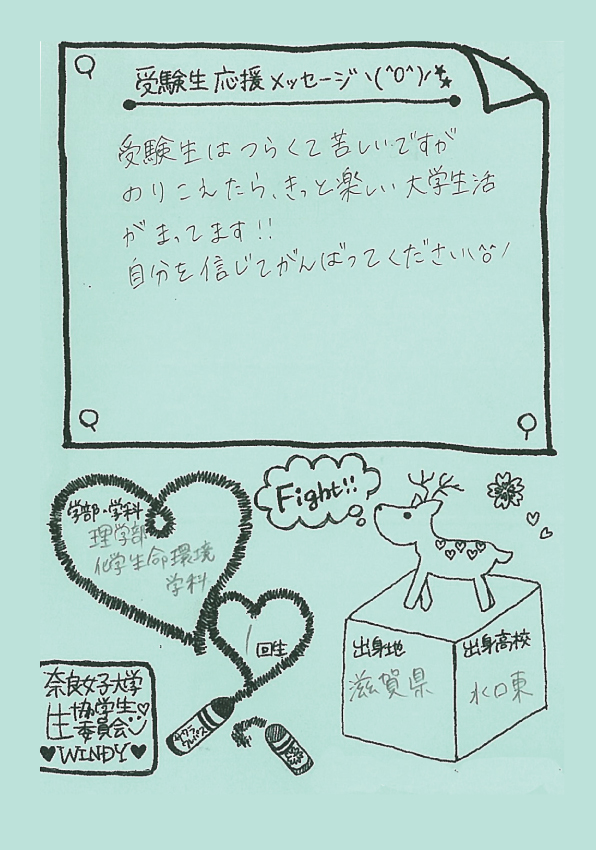 受験生応援メッセージヽ(^O^)ノ
受験生はつらくて苦しいですが
のりこえたら、きっと楽しい大学生活
がまってます!!
自分を信じてがんばってください\^o^/
Fight!!
学部・学科
理学部
化学生命環境
学科
1回生
出身地
滋賀県
出身高校
水口東
奈良女子大学
生協学生
委員会
♥WINDY♥
サクラ
クレパス